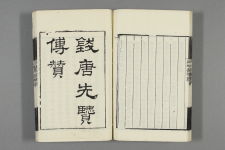 錢唐先賢
傳贊